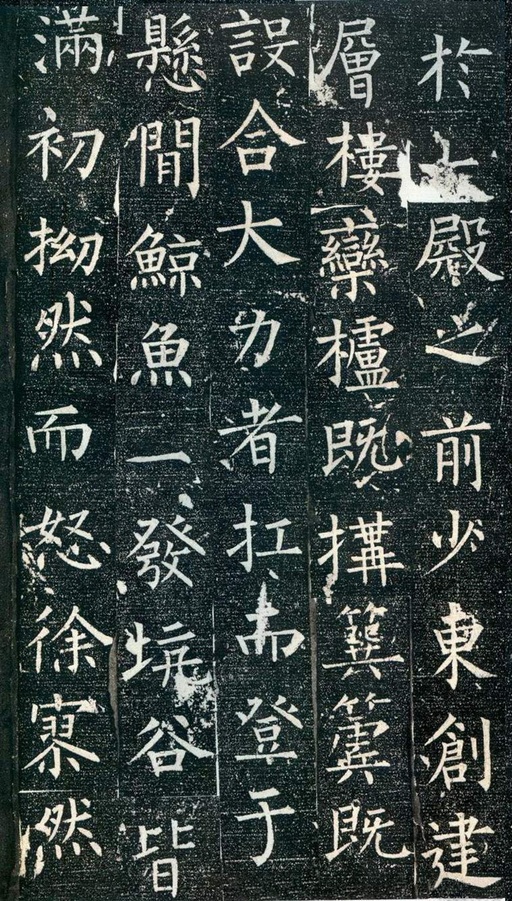 於殿之前少東創建
層樓欒櫨既搆簨簴既
設合大力者扛而登于
懸間鯨魚一發坑谷皆
滿初拗然而怒徐寥然